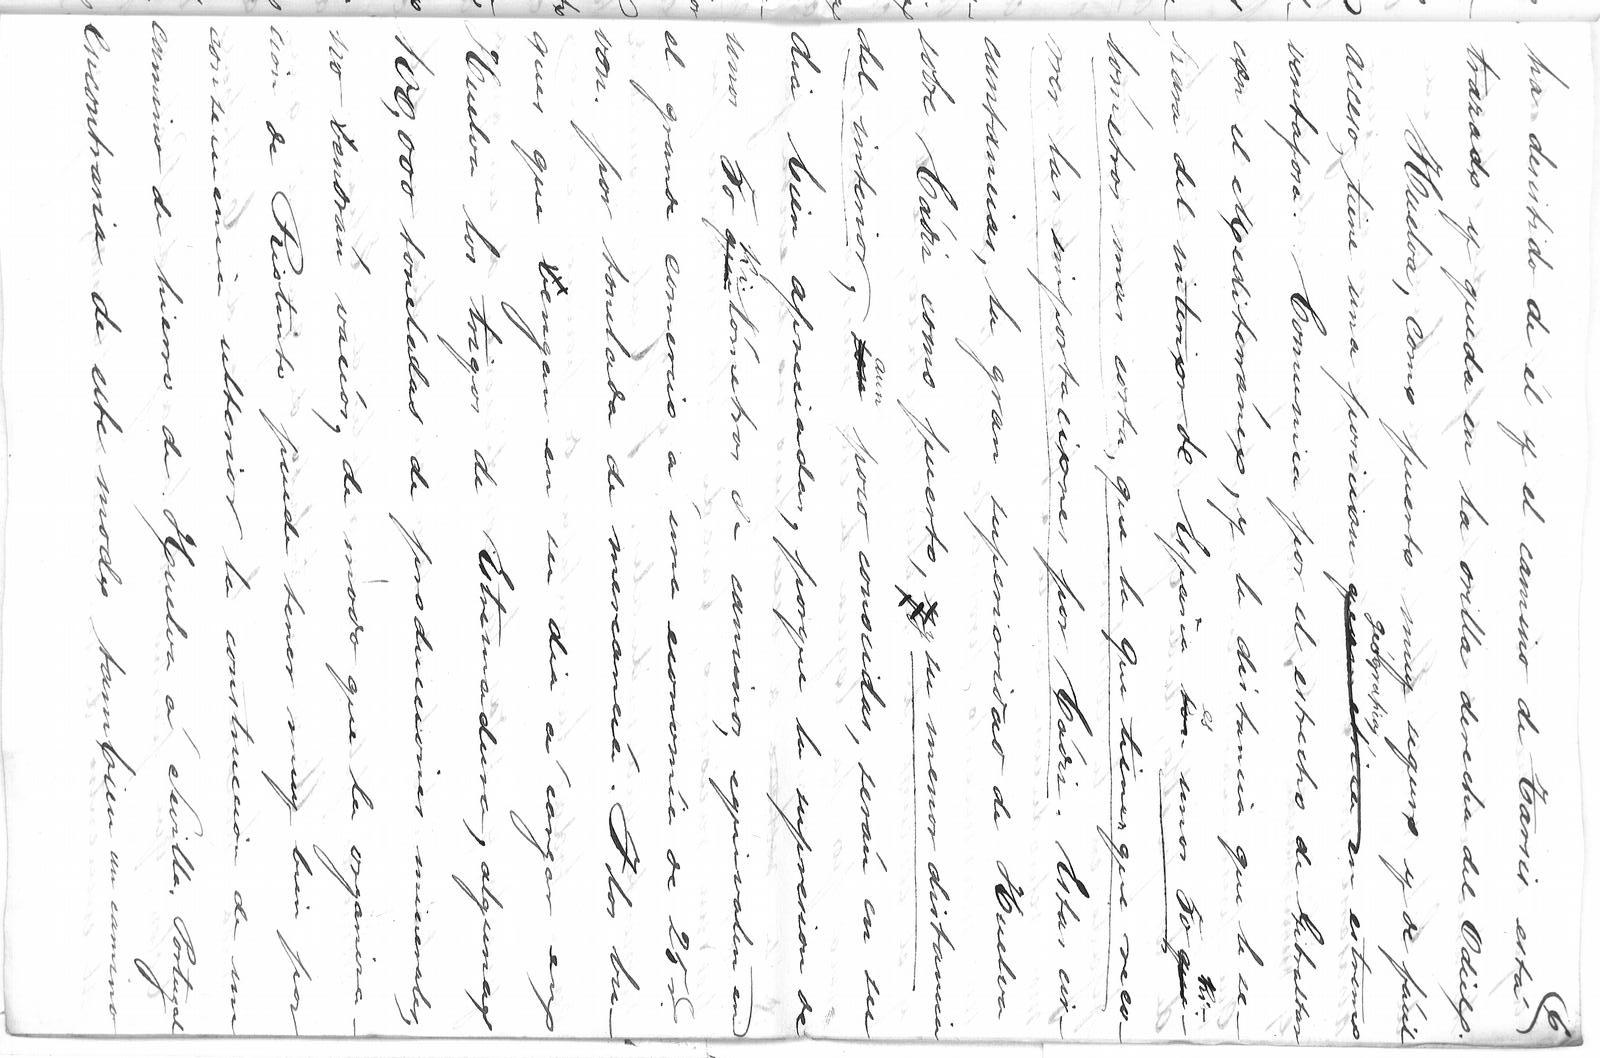 6
ha desistido de él y el camino de Tarsis está
trazado y queda en la orilla derecha del Odiel.
Huelva, como puerto muy seguro y de fácil
acceso, tiene una posicion geográfica en estremo
ventajosa. Comunica por el estrecho de Gibraltar
con el Mediterráneo, y la distancia que la se-
para del interior de España es unos 70 kí-
lómetros mas corta, que la que tienen que reco-
rrer las importaciones por Cádiz. Estas cir-
cunstancias, la gran superioridad de Huelva
sobre Cádiz como puerto, y su menor distancia
del interior, aun poco conocidas, serán en su
dia bien apreciadas, porque la supresion de
unos 70 kilómetros de camino, equivalen en
el grande comercio a una economía de 25 r.
von. por tonelada de mercancía. I los bu-
ques que vengan en su dia á cargar en
Huelva los trigos de Estremadura, algunas
100,000 toneladas de producciones minerales,
no vendrán vacios, de modo que la organiza-
cion de Riotinto puede tener muy bien por
consecuencia ulterior la construccion de un
camino de hierro de Huelva á Sevilla. Portugal
encontraria de este modo tambien un camino